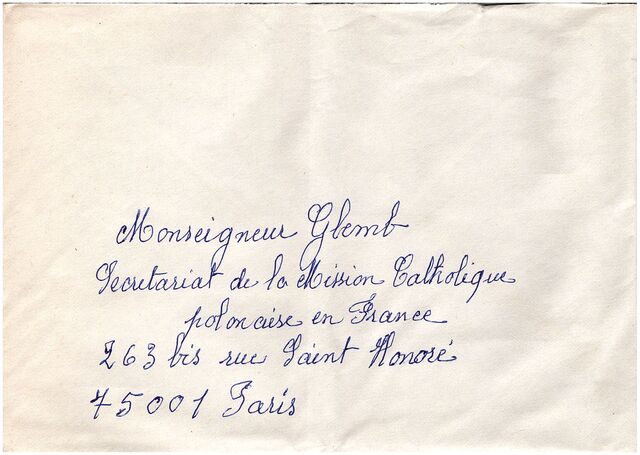 Monseigneur Glemb
Secretariat de la Mission Catholique
polonaise en France
263 bis rue Saint Honoré
75001 Paris